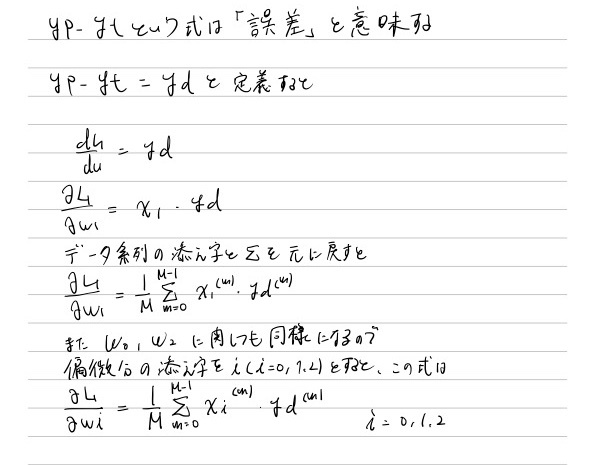 yp - yt という式は「誤差」を意味する
yp - yt = yd と定義すると
dL/du = yd
∂L/∂w₁ = x₁ · yd
データ系列の添え字とΣを元に戻すと
∂L/∂w₁ = 1/M Σ_{m=0}^{M-1} x₁^{(m)} · yd^{(m)}
また w₀, w₂ に関しても同様になるので
偏微分の添え字を i (i=0, 1, 2) とすると、この式は
∂L/∂wi = 1/M Σ_{m=0}^{M-1} xi^{(m)} · yd^{(m)}    i = 0, 1, 2